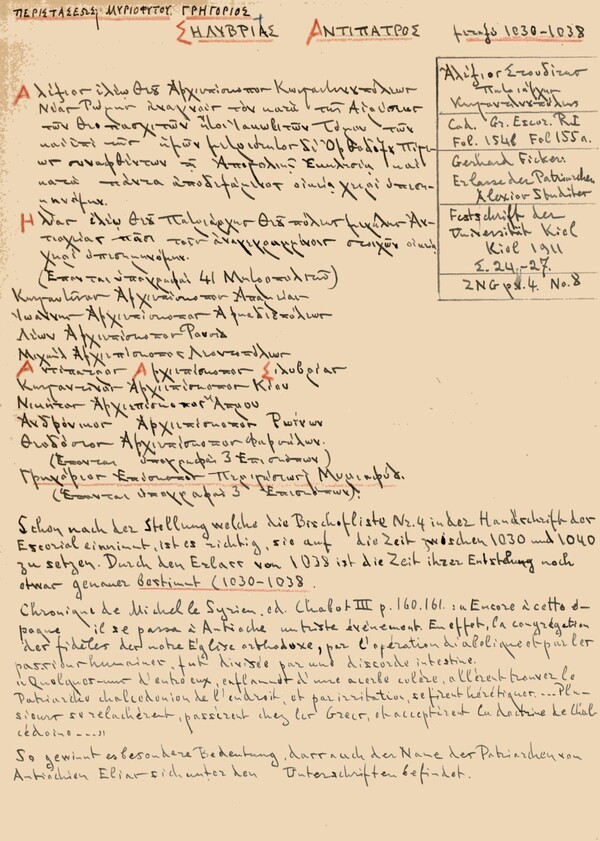 ΠΕΡΙΣΤΑΣΕΩΣ ΜΥΡΙΟΦΥΤΟΥ ΓΡΗΓΟΡΙΟΣ
ΣΗΛΥΒΡΙΑΣ ΑΝΤΙΠΑΤΡΟΣ μεταξύ 1030-1038
Ἀλέξιος Στουδίτης
Πατριάρχης
Κωνσταντινουπόλεως
Cod. Gr. Escor. R.I
Fol. 154b Fol 155a.
Gerhard Ficker
Erlasse der Patriarchen
Alexios Studites
Festschrift der
Universität Kiel
Kiel 1911
Σ. 24.-27.
ZNG No. 8
Ἀλέξιος ἐλέῳ Θεοῦ Ἀρχιεπίσκοπος Κωνσταντινουπόλεως
Νέας Ῥώμης τὸν κατὰ τῆς Αἱρέσεως
τῶν Θεοπασχιτῶν Ἰακωβιτῶν Τόμον τῶν
κατὰ πάντα
Ἠλίας ἐλέῳ Θεοῦ Πατριάρχης Θεουπόλεως μεγάλης Ἀν-
τιοχείας πᾶσι τοῖς
χειρὶ
(Ἕπονται ὑπογραφαὶ 41 Μητροπολιτῶν)
Κωνσταντῖνος Ἀρχιεπίσκοπος Ἀπαμείας
Ἰωάννης Ἀρχιεπίσκοπος
Λέων Ἀρχιεπίσκοπος
Μιχαὴλ Ἀρχιεπίσκοπος Λεοντοπόλεως
Ἀντίπατρος Ἀρχιεπίσκοπος Σιλυβρίας
Κωνσταντῖνος Ἀρχιεπίσκοπος Κίου
Νικήτας Ἀρχιεπίσκοπος Ἄπρου
Ἀνδρόνικος Ἀρχιεπίσκοπος
Θεοδόσιος Ἀρχιεπίσκοπος
(Ἕπονται ὑπογραφαὶ 3 Ἐπισκόπων)
Γρηγόριος Ἐπίσκοπος
(Ἕπονται ὑπογραφαὶ 3 Ἐπισκόπων).
Schon nach der Stellung welche die Bischofliste Nr. 4 in der Handschrift der
Escorial einnimmt, ist es richtig, sie auf die Zeit zwischen 1030 und 1040
zu setzen. Durch den Erlass von 1038 ist die Zeit ihrer Entstehung noch
etwas genauer bestimmt (1030-1038.
Chronique de Michel le Syrien, ed. Chabot III p. 160.161. : « Encore à cette é-
poque il se passa à Antioche un triste événement. En effet, la congrégation
des fidèles de notre Église orthodoxe, par l'opération diabolique et par les
passions humaines, fut divisée par une discorde intestine.
« Quelques-uns d'entre eux, enflammés d'une acerbe colère, allèrent trouver le
Patriarche chalcédonien de l'endroit, et par irritation, se firent hérétiques .... Plu-
sieurs se relachèrent, passèrent chez les Grecs, et acceptèrent la doctrine de Chal-
cédoine....»
So gewinnt es besondere Bedeutung, dass auch der Name der Patriarchen von
Antiochien Elias sich unter den Unterschriften befindet.